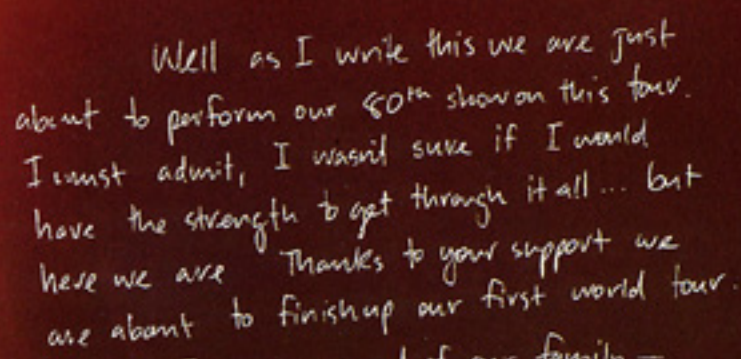 Well as I write this we are just
about to perform our 80th show on this tour.
I must admit, I wasn't sure if I would
have the strength to get through it all... but
here we are Thanks to your support we
are about to finish up our first world tour.
of our family –